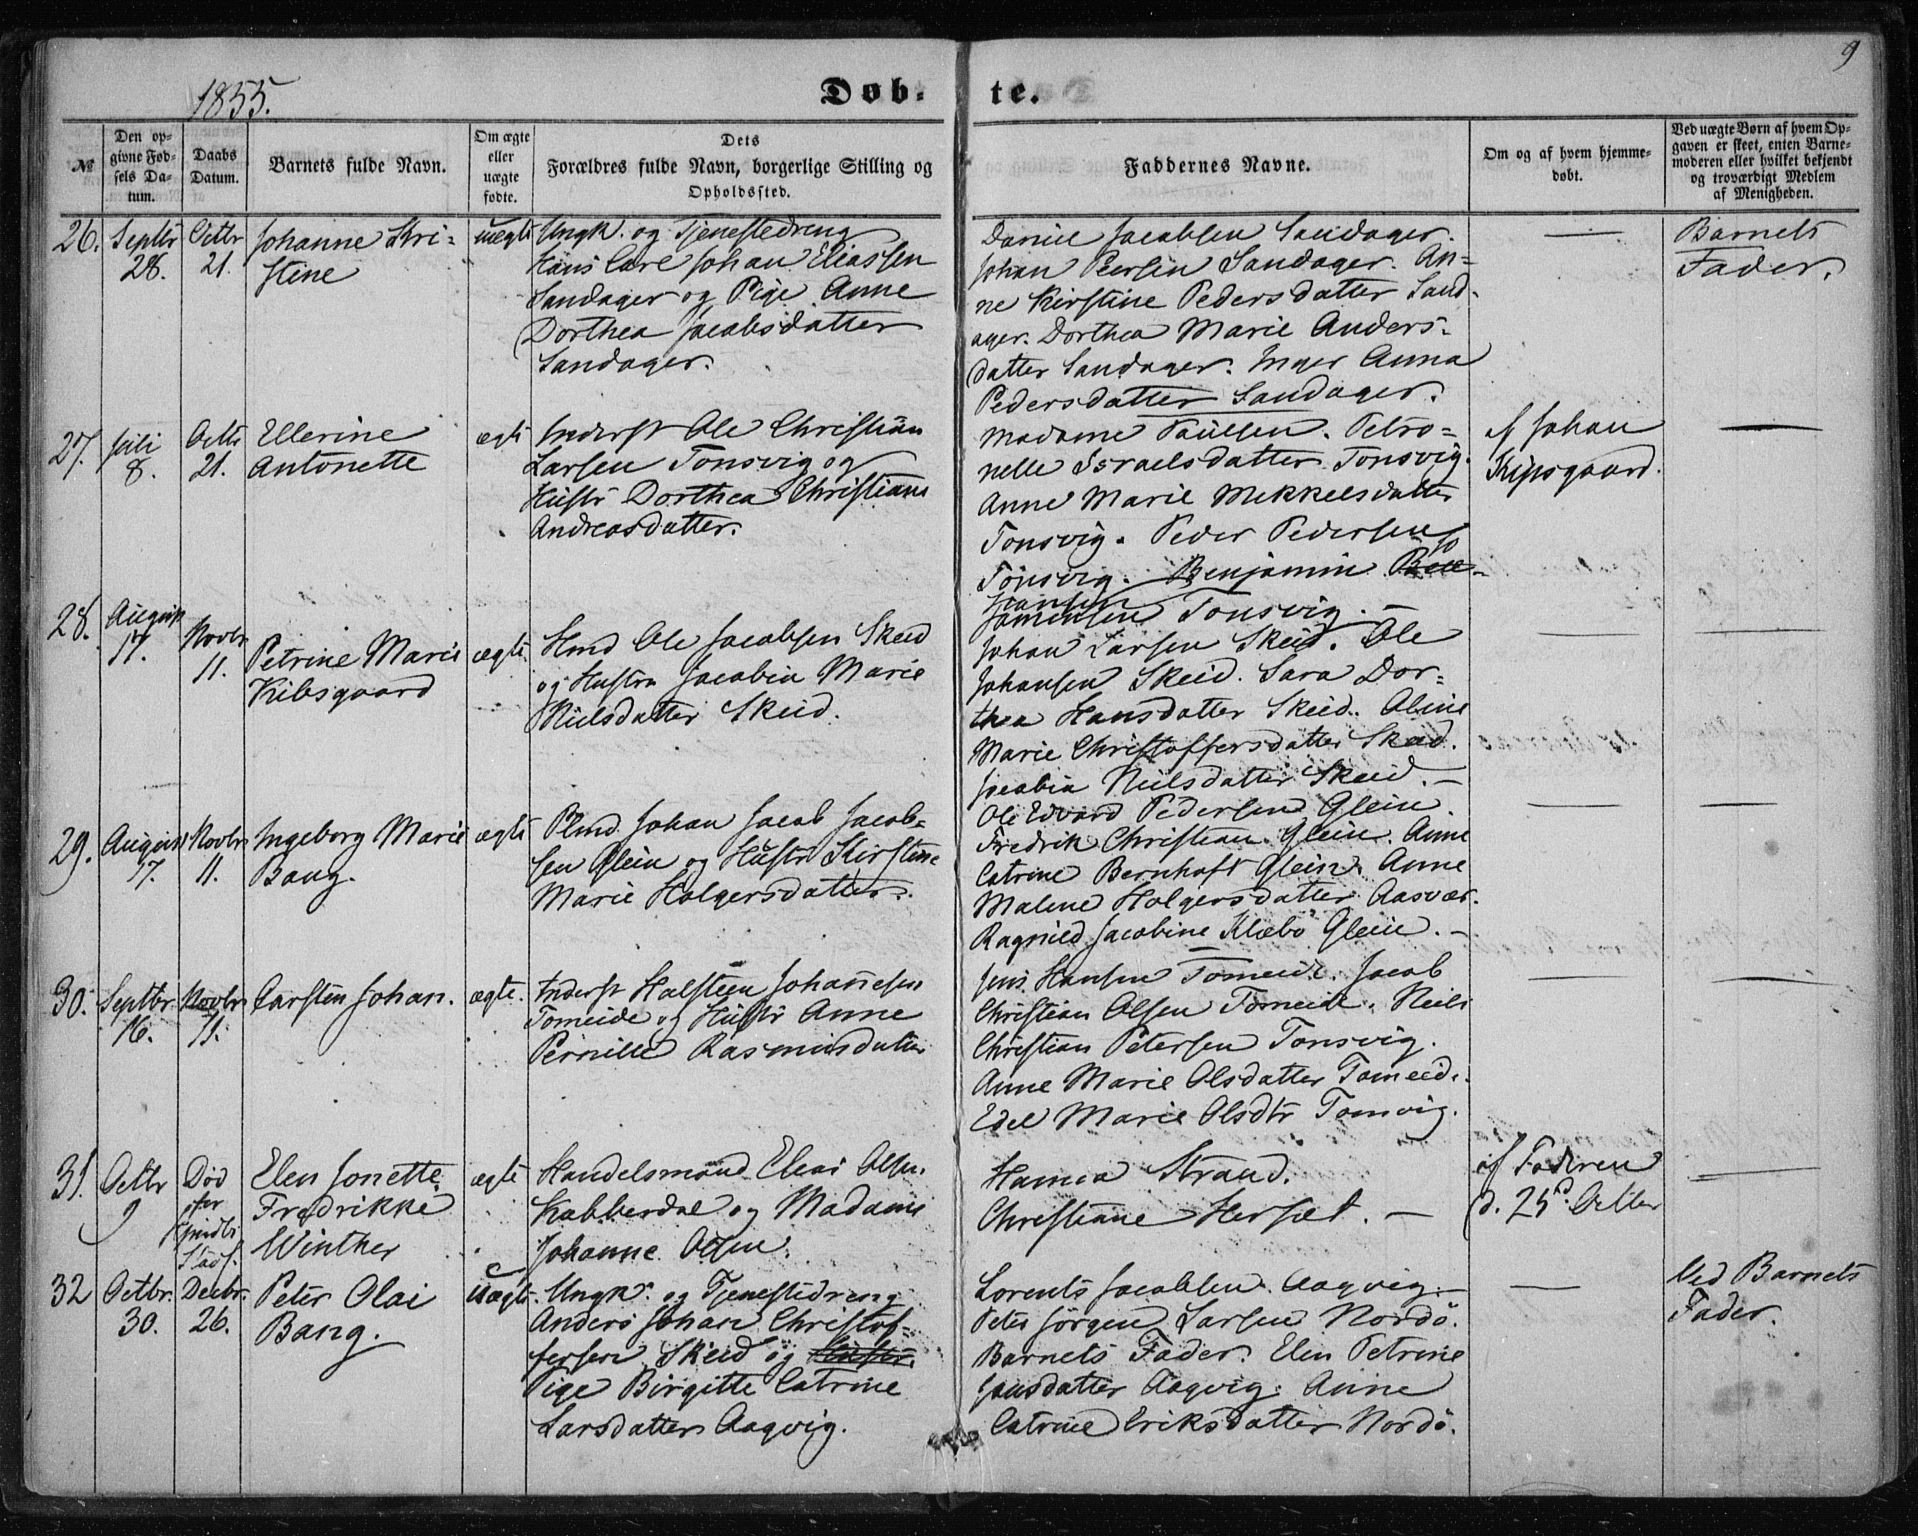 9
1855.
Døb-te.
№
Den op-
givne Fød-
sels Da-
tum.
Daabs
Datum.
Barnets fulde Navn.
Om ægte
eller
uægte
fødte.
Dets
Forældres fulde Navn, borgerlige Stilling og
Opholdssted.
Faddernes Navne.
Om og af hvem hjemme-
døbt.
Ved uægte Børn af hvem Op-
gaven er skeet, enten Barne-
moderen eller hvilket bekjendt
og troværdigt Medlem
af Menigheden.
26.
Septbr
28.
Octbr
21.
Johanne Kri-
stine
uægte
Ungk. og Tjenestedreng
Hans Carl Johan Eliassen
Sandager og Pige Anne
Dorthea Jacobsdatter
Sandager.
Daniel Jacobsen Sandager.
Johan Peersen Sandager. An-
ne Kirstine Pedersdatter Sand-
ager. Dorthea Marie Anders-
datter Sandager. Inger Anna
Pedersdatter Sandager.
Barnets
Fader.
27.
Juli
8.
Octbr
21.
Ellerine
Antonette
ægte
Inderst Ole Christian
Larsen Tonsvig og
Hustr Dorthea Christiane
Andreasdatter.
Madame Paulsen. Petro-
nelle Israelsdatter Tonsvig.
Anne Marie Mekkelsdatter
Tonsvig. Peder Pedersen
Tonsvig. Benjamin
Hansen
Tonsvig. —
af Johan
Kipsgaard.
28.
August
17.
Novbr
11.
Petrine Marie
Kibsgaard
ægte.
Hmd Ole Jacobsen Skeid
og Hustru Jacobia Marie
Nielsdatter Skeid.
Johan Larsen Skeid. Ole
Johansen Skeid. Sara Dor-
thea Hansdatter Skeid. Oline
Marie Christoffersdatter Skeid.
Jacobia Nielsdatter Skeid. —
29.
August
17.
Novbr
11.
Ingeborg Marie
Bang.
ægte
Plmd Johan Jacob Jacob-
sen Glein og Hustr Kirstine
Marie Holgersdatter.
Ole Edvard Pedersen Glein.
Fredrik Christian Glein. Anne
Catrine Bernhoft Glein. Anne
Malene Holgersdatter Aasvær.
Ragnild Jacobine Klæbo Glein. —
30.
Septbr
16.
Novbr
11.
Carsten Johan.
ægte.
Inderst Halsteen Johannesen
Tomeide og Hustr Anne
Pernille Rasmusdatter
Jens Hansen Tomeide. Jacob
Christian Olsen Tomeide. Neils
Christian Petersen Tonsvig.
Anne Marie Olsdatter Tomeid.
Edel Marie Olsdtr Tonsvig.
31.
Octbr
9
Død
før
Stadf.
Elen Jonette
Fredrikke
Winther
ægte
Handelsmand Elias Olsen
Kobberdal og Madame
Johanne Olsen.
Hanna Strand.
Christiane Hersæt. —
af Faderen
d. 25d Octbr
32
Octbr.
30.
Decbr.
26.
Peter Olai
Bang.
Uægte.
Ungk. og Tjenestedreng
Anders Johan Christof-
fersen Skeid og Hustr.
Pige Birgitte Catrine
Larsdatter Aagvig.
Lorents Jacobsen Aagvig.
Peter Jörgen Larsen Nordö.
Barnets Fader. Elen Petrine
Jensdatter Aagvig. Anne
Catrine Eriksdatter Nordö.
Ved Barnets
Fader.